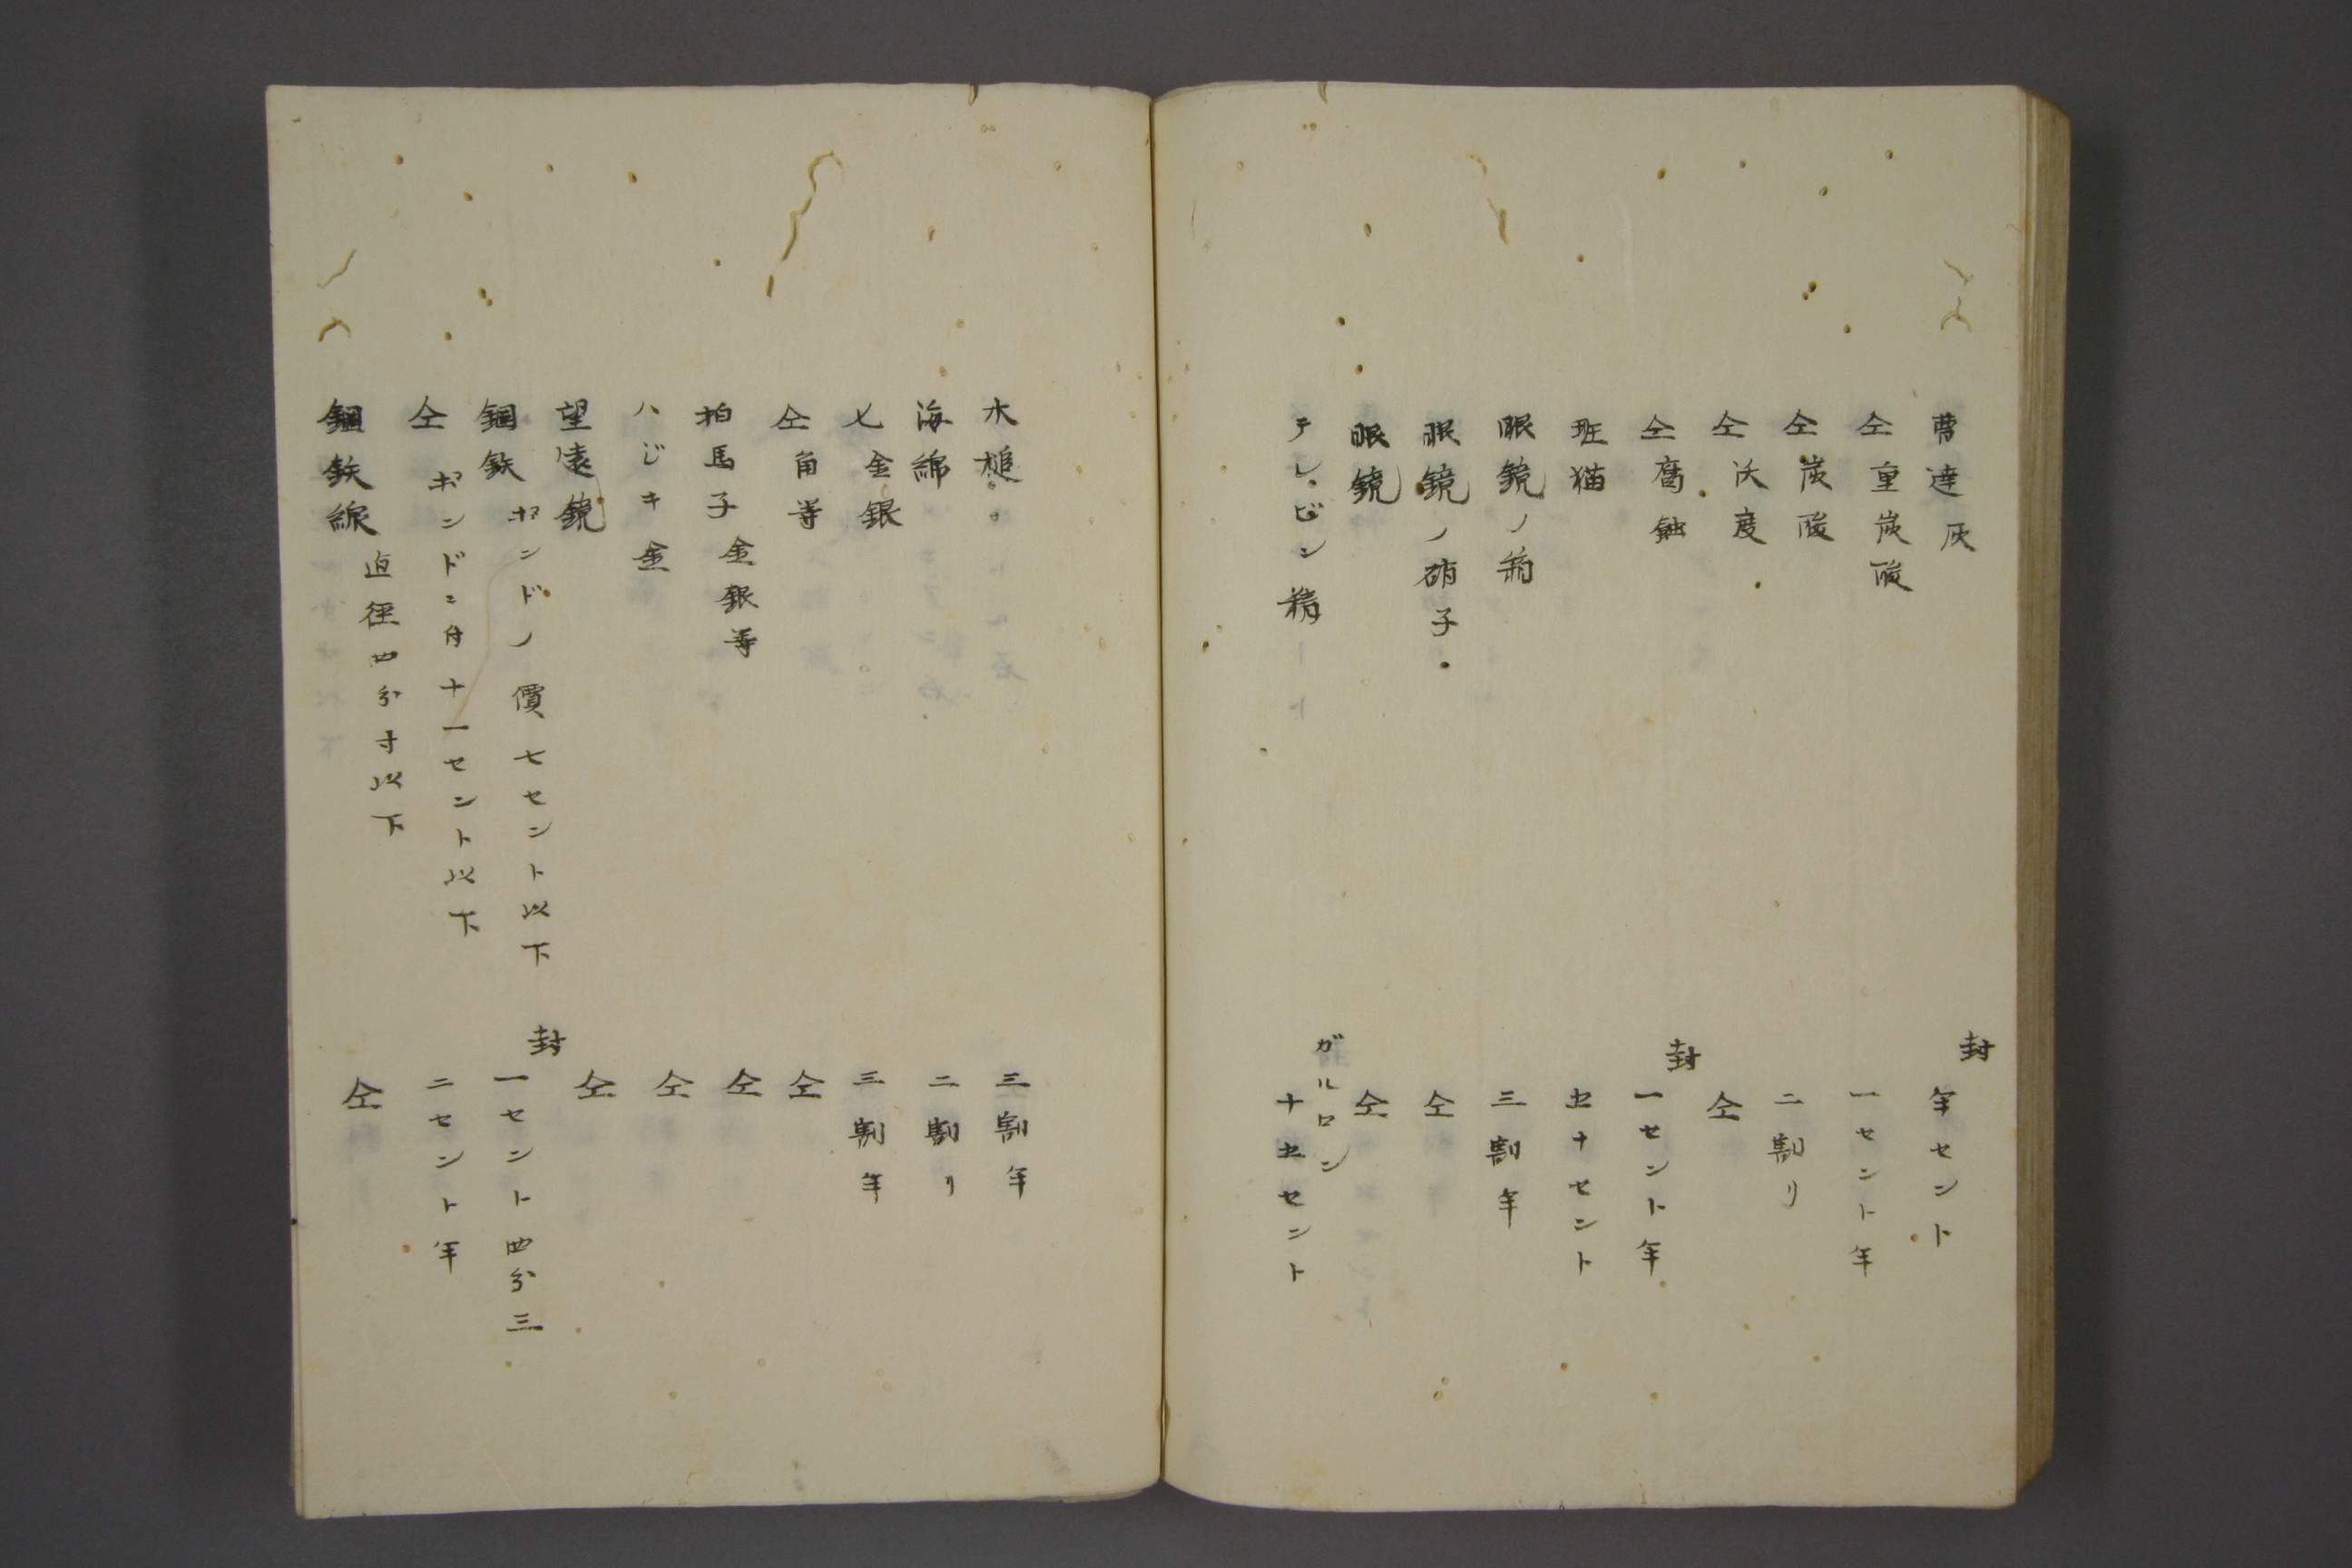 曹達灰　封　半セント
仝重炭酸　一セント半
仝炭酸　二割リ
仝沃度　仝
仝腐蝕　封　一セント半
班猫　五十セント
眼鏡ノ箱　三割半
眼鏡ノ硝子　仝
眼鏡　仝
テレビン精　ガルロン　十五セント
木槌　三割半
海綿　二割リ
匕金銀　三割半
仝角等　仝
拍馬子金銀等　仝
ハジキ金　仝
望遠鏡　仝
鋼鉄　ポンドノ價七セント以下　封　一セント四分三
仝　ポンドニ付十一セント以下　二セント半
鋼鉄線　直徑四分寸以下　仝